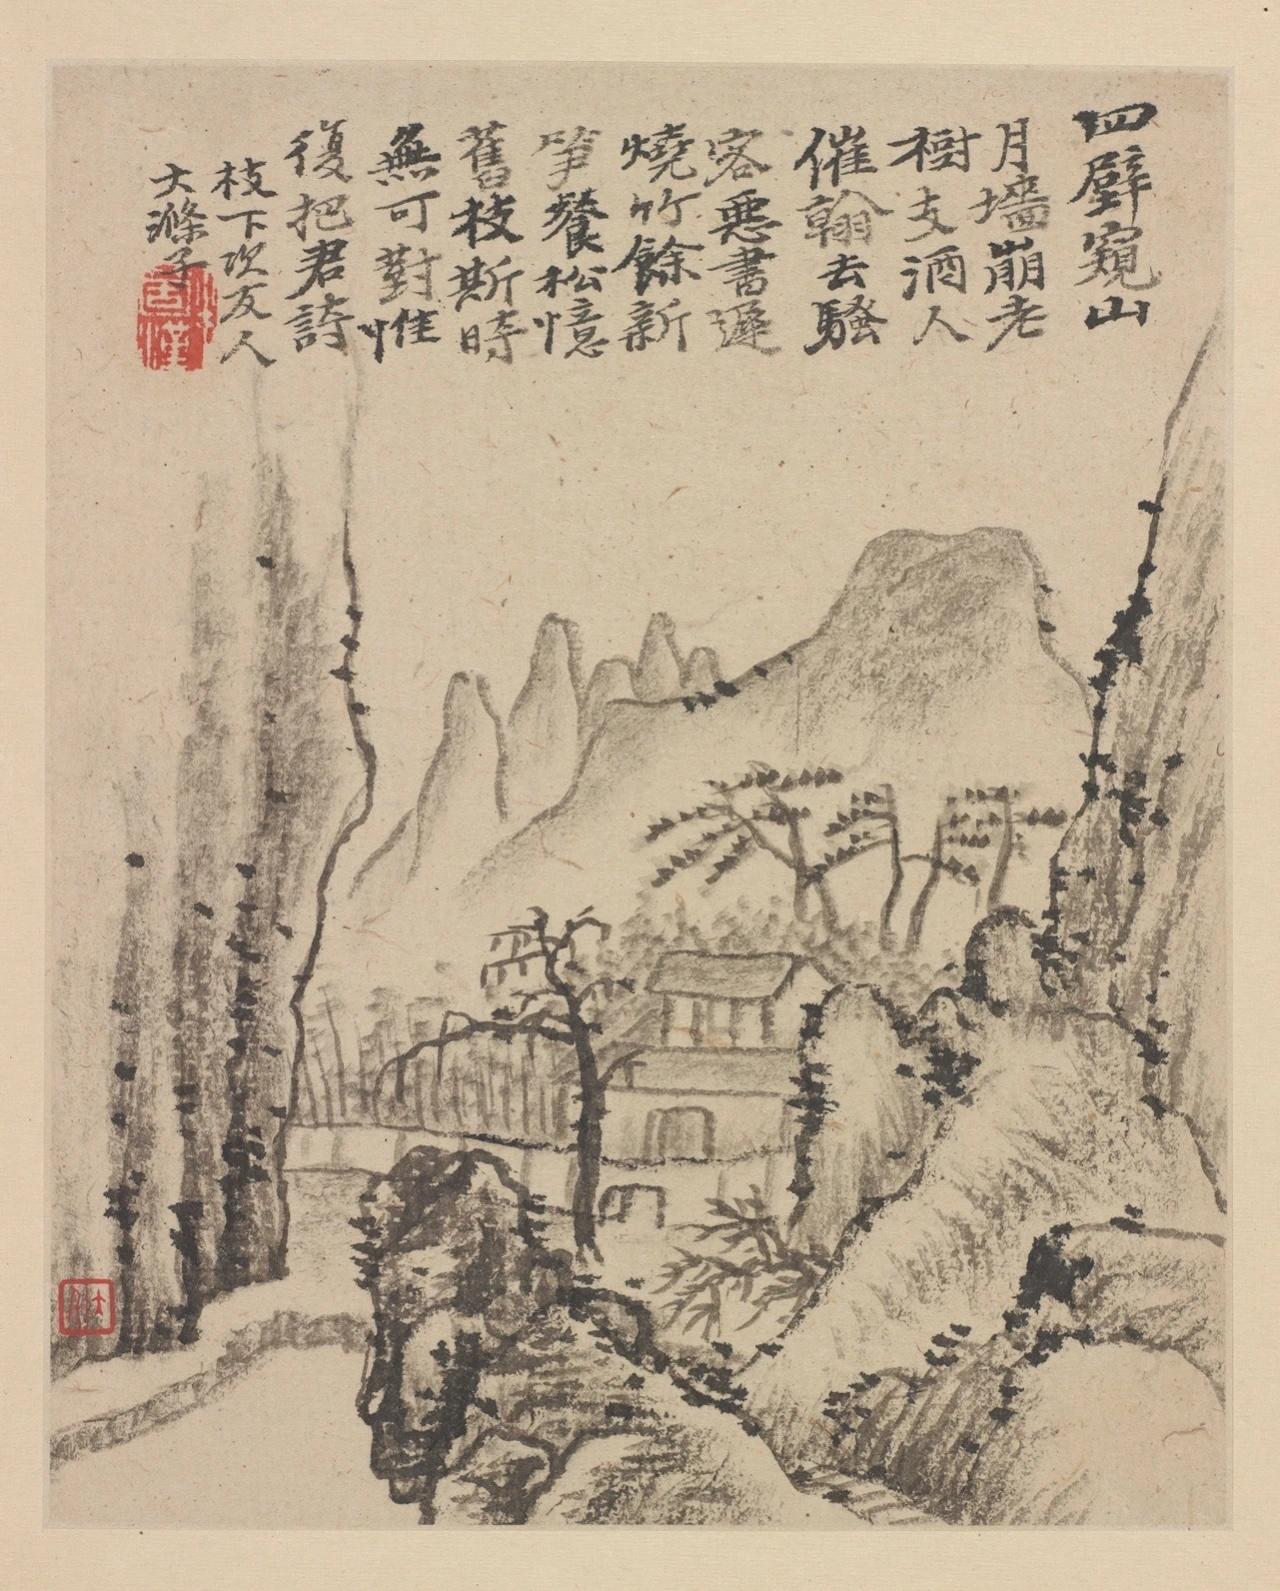 四壁窺山
月墻崩老
樹支酒人
催翰去騷
客惡書遲
燒竹餘新
筍餐松憶
舊枝斯時
無可對惟
復把君詩
枝下次友人
大滌子